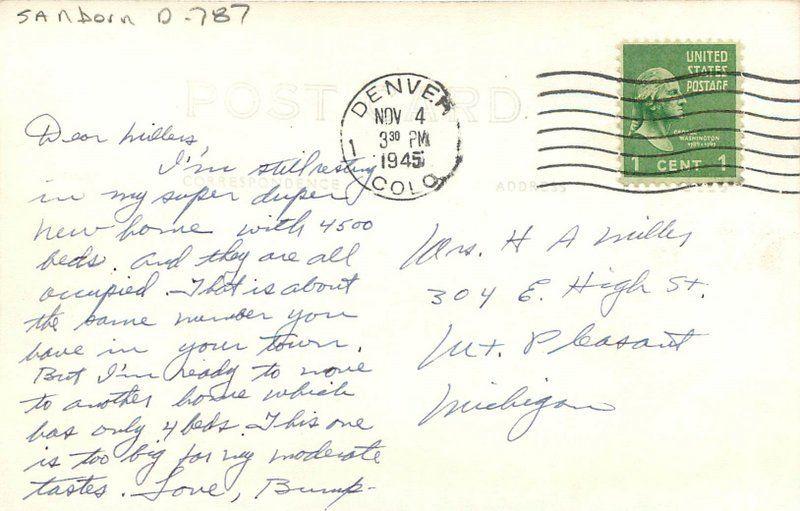 Sanborn D-787
POST CARD
DENVER
NOV 4
3 30 PM
1945
COLO.
1
UNITED
STATES
POSTAGE
GEORGE
WASHINGTON
1789-1797
1 CENT 1
CORRESPONDENCE
ADDRESS
Dear Millers
I'm still resting
in my super duper
new home with 4500
beds. And they are all
occupied. That is about
the same number you
have in your town.
But I'm ready to move
to another home which
has only 4 beds. This one
is too big for my moderate
tastes. Love, Bump-
Mrs. H A Miller
304 E. High St.
Mt. Pleasant
Michigan